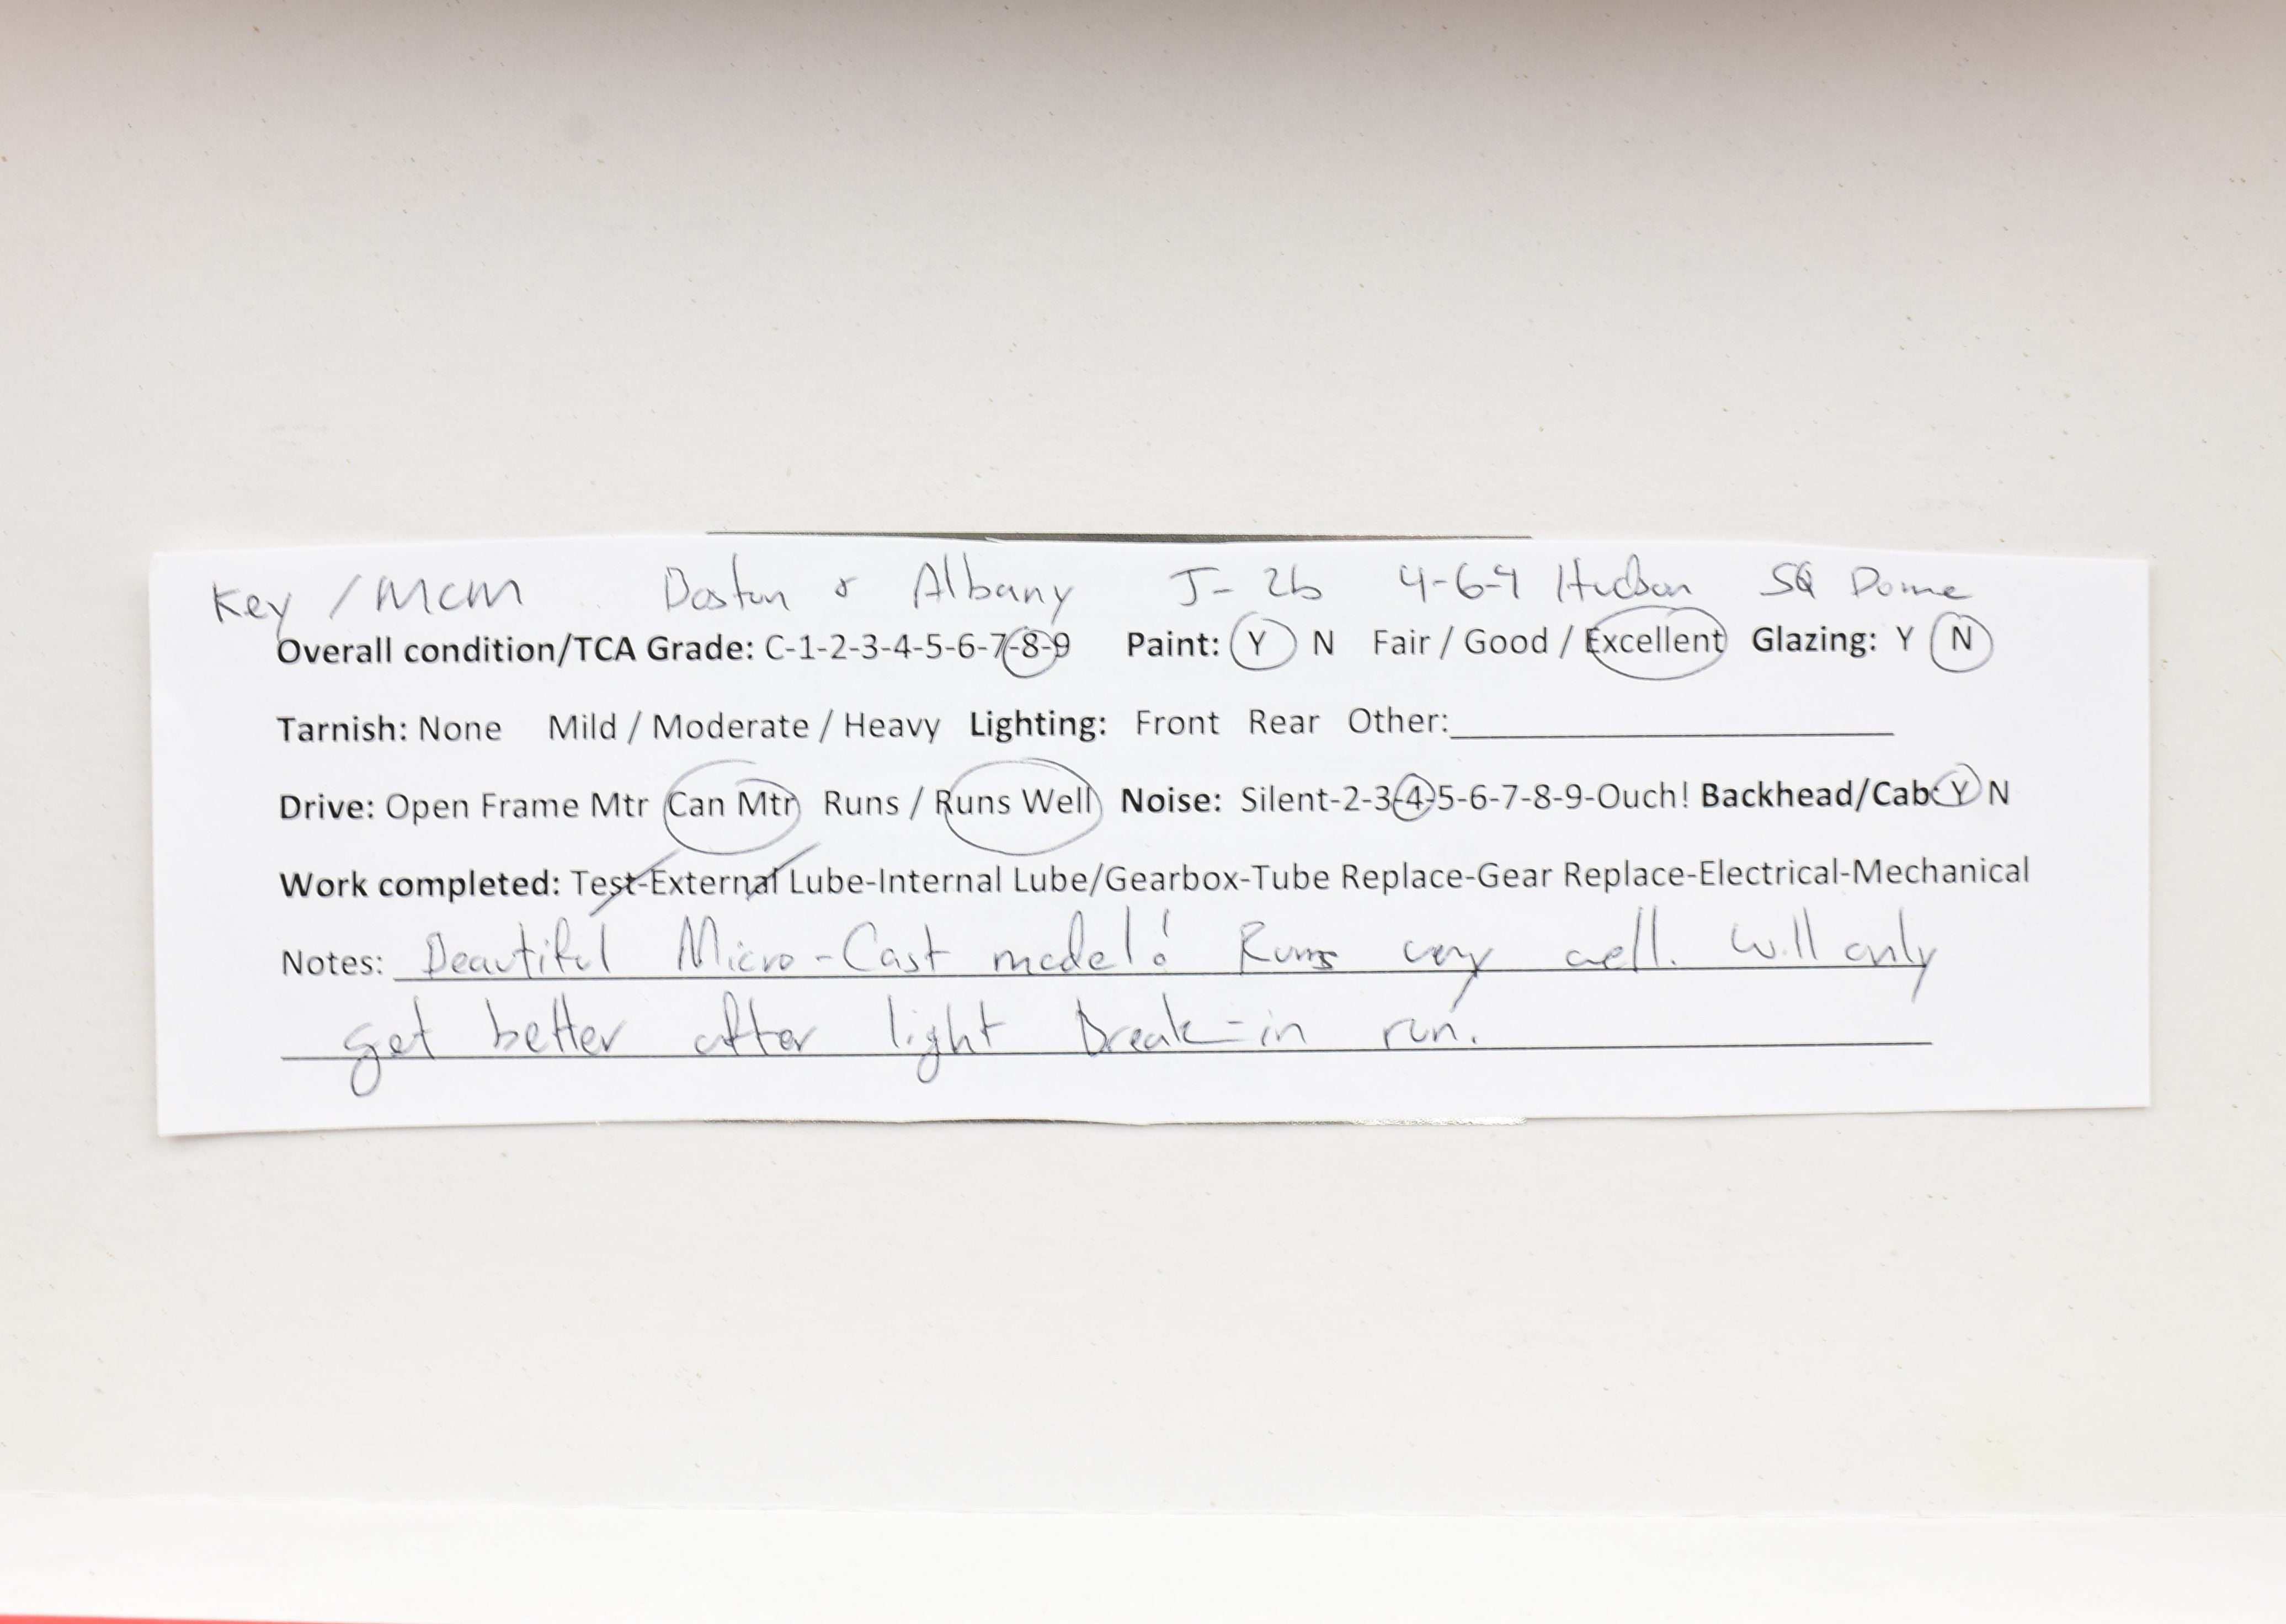 Key / MCM Boston & Albany J-2b 4-6-4 Hudson SQ Dome
Overall condition/TCA Grade: C-1-2-3-4-5-6-7-8-9 Paint: Y N Fair / Good / Excellent Glazing: Y N
Tarnish: None Mild / Moderate / Heavy Lighting: Front Rear Other:
Drive: Open Frame Mtr Can Mtr Runs / Runs Well Noise: Silent-2-3-4-5-6-7-8-9-Ouch! Backhead/Cab: Y N
Work completed: Test-External Lube-Internal Lube/Gearbox-Tube Replace-Gear Replace-Electrical-Mechanical
Notes: Beautiful Micro-Cast model! Runs very well. Will only
get better after light break-in run.